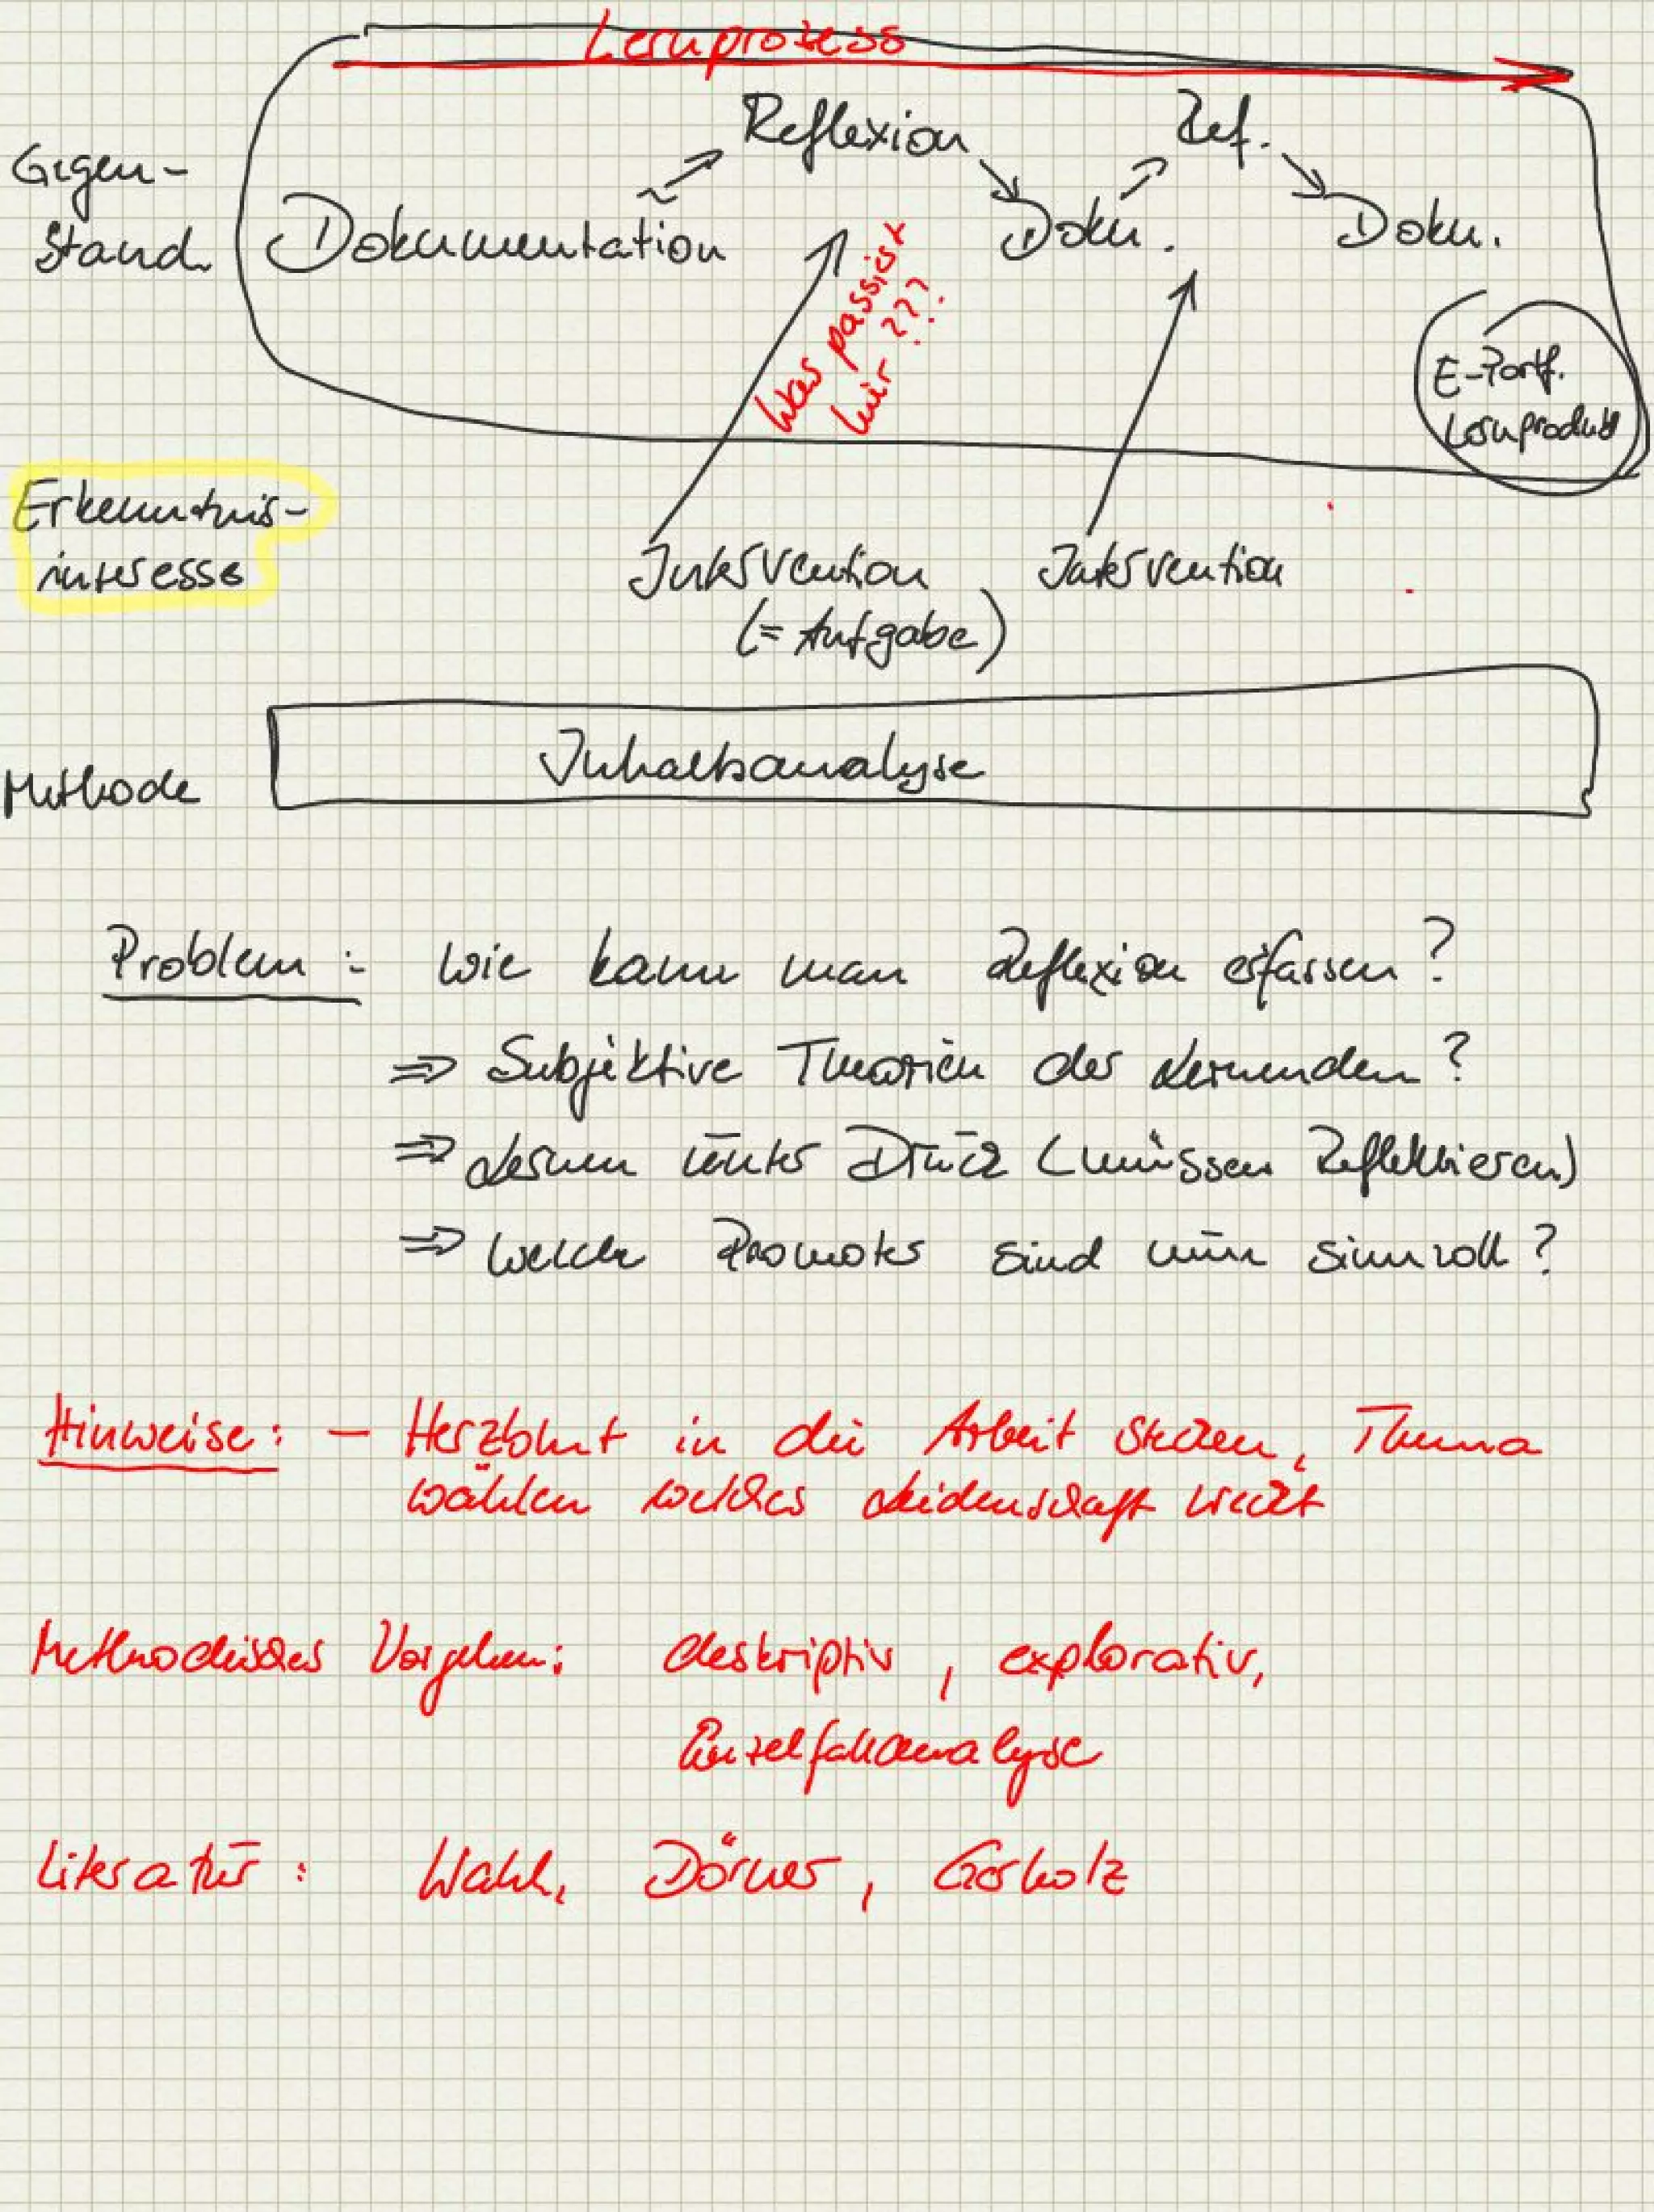 Lernprozess
Reflexion
Ref.
Gegen-
stand
Dokumentation
Doku.
Doku.
Was passiert
hier ???
E-Portf.
Lernprodukt
Erkenntnis-
interesse
Intervention
(= Aufgabe)
Intervention
Methode
Inhaltsanalyse
Problem: Wie kann man Reflexion erfassen?
⇒ Subjektive Theorien der Lernenden?
⇒ Lernen unter Druck (müssen Reflektieren)
⇒ Welche Promoter sind nun sinnvoll?
Hinweise: - Herzblut in die Arbeit stecken, Thema
wählen welches Leidenschaft weckt
Methodisches Vorgehen: deskriptiv, explorativ,
Einzelfallanalyse
Literatur: Wahl, Dörner, Gerholz